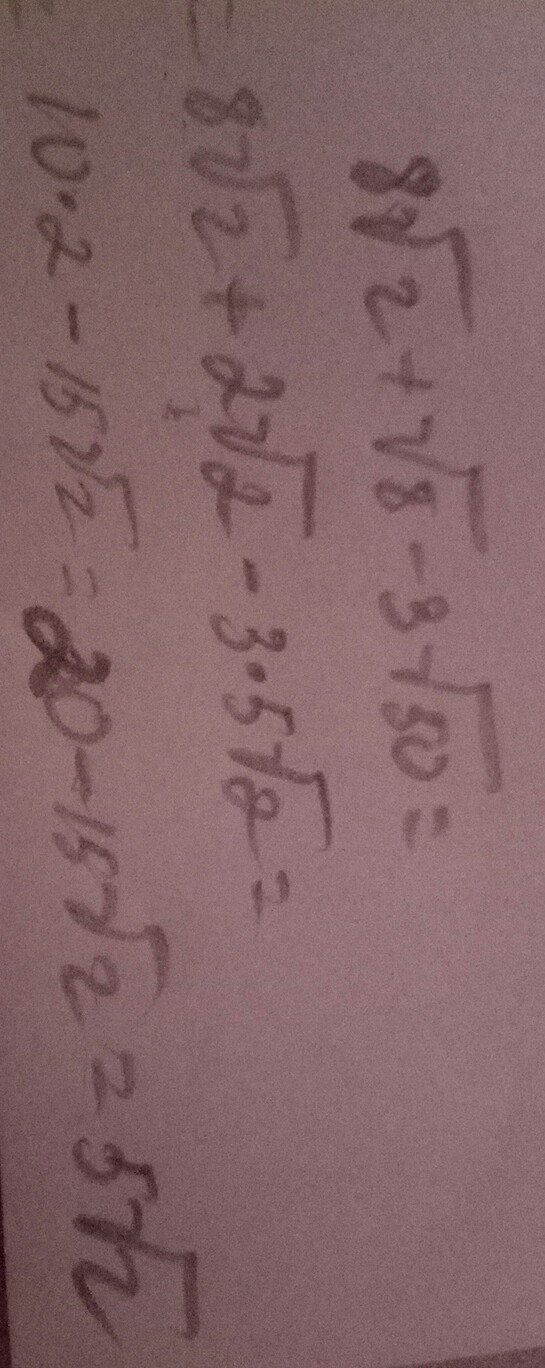 8√2 + √8 - 3√50 =
= 8√2 + 2√2 - 3·5√2 =
10·2 - 15√2 = 20 - 15√2 = 5√2